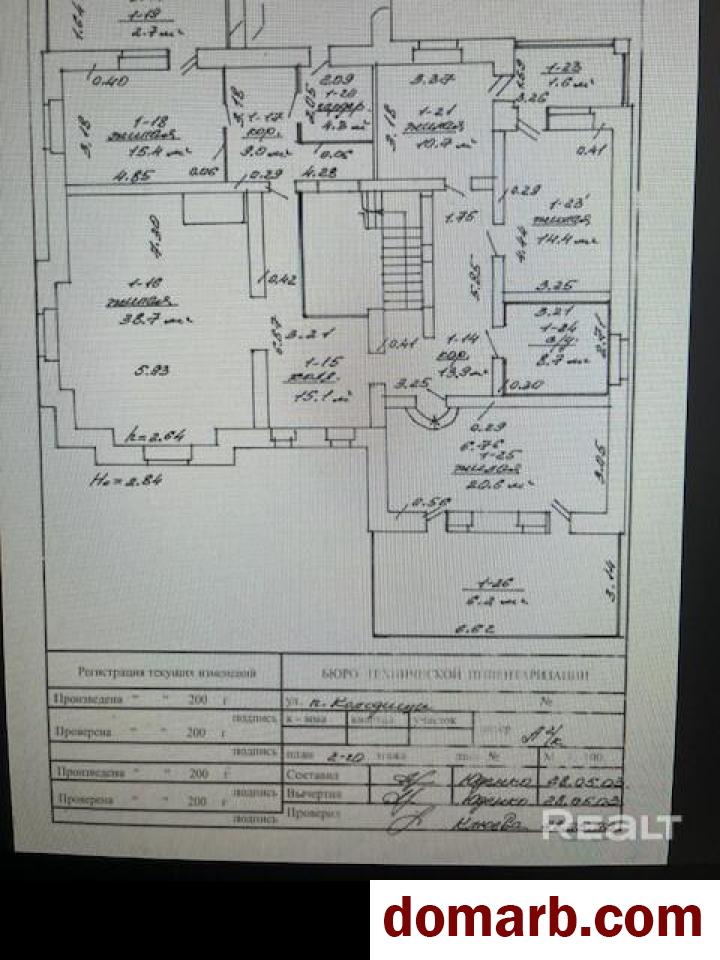 1.64
1-19
2.7 м²
0.40
3.18
1-18
жилая
15.4 м²
4.85
0.06
3.18
1-17
кор.
9.0 м²
0.29
2.09
2.05
1-20
гардер.
4.3 м²
0.06
4.28
3.37
3.18
1-21
жилая
10.7 м²
1-23
1.6 м²
3.26
0.41
0.29
1-23'
жилая
14.4 м²
4.44
3.25
7.30
1-16
жилая
38.7 м²
5.93
0.42
6.87
3.21
1-15
холл
15.1 м²
1.75
5.25
0.41
1-14
кор.
13.9 м²
3.25
3.21
1-24
с/у
8.7 м²
2.71
0.20
h=2.64
Hо=2.84
0.29
6.76
1-25
жилая
20.6 м²
3.05
0.56
1-26
6.2 м²
3.14
6.62
Регистрация текущих изменений
БЮРО ТЕХНИЧЕСКОЙ ИНВЕНТАРИЗАЦИИ
Произведена " " 200 г
ул. п. Колодищи №
подпись
к - мма квартал участок
Проверена " " 200 г
подпись
план 2-го этажа №
Произведена " " 200 г
Составил 28.05.03
подпись
Вычертил 28.05.03
Проверена " " 200 г
подпись
Проверил
REALT
domarb.com